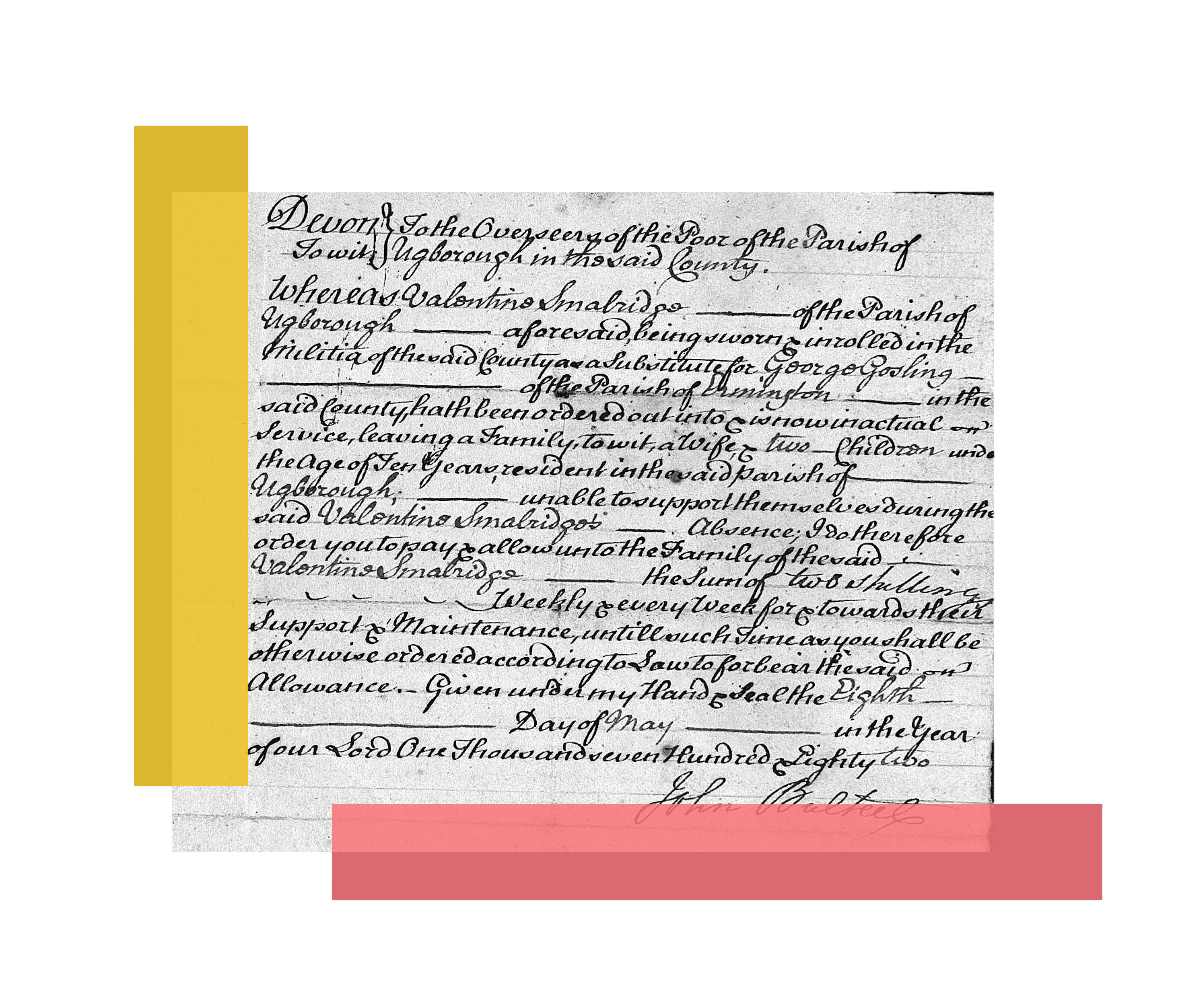 Devon } To the Overseers of the Poor of the Parish of
To wit } Ugborough in the said County.
Whereas Valentine Smabridge —— of the Parish of
Ugborough —— aforesaid, being sworn & inrolled in the
Militia of the said County as a Substitute for George Gosling —
—— of the Parish of Ermington —— in the
said County, hath been ordered out into & is now in actual
Service, leaving a Family, to wit, a Wife, & two — Children unde
the Age of Ten Years, resident in the said parish of ——
Ugborough, —— unable to support themselves during the
said Valentine Smabridges —— Absence; I do therefore
order you to pay & allow unto the Family of the said —
Valentine Smabridge —— the Sum of two shillings
Weekly & every Week for & towards their
Support & Maintenance, untill such Time as you shall be
otherwise ordered according to Law to forbear the said
Allowance. – Given under my Hand & Seal the Eighth —
—— Day of May —— in the Year
of our Lord One Thousand seven Hundred & Eighty two
John Bulteel